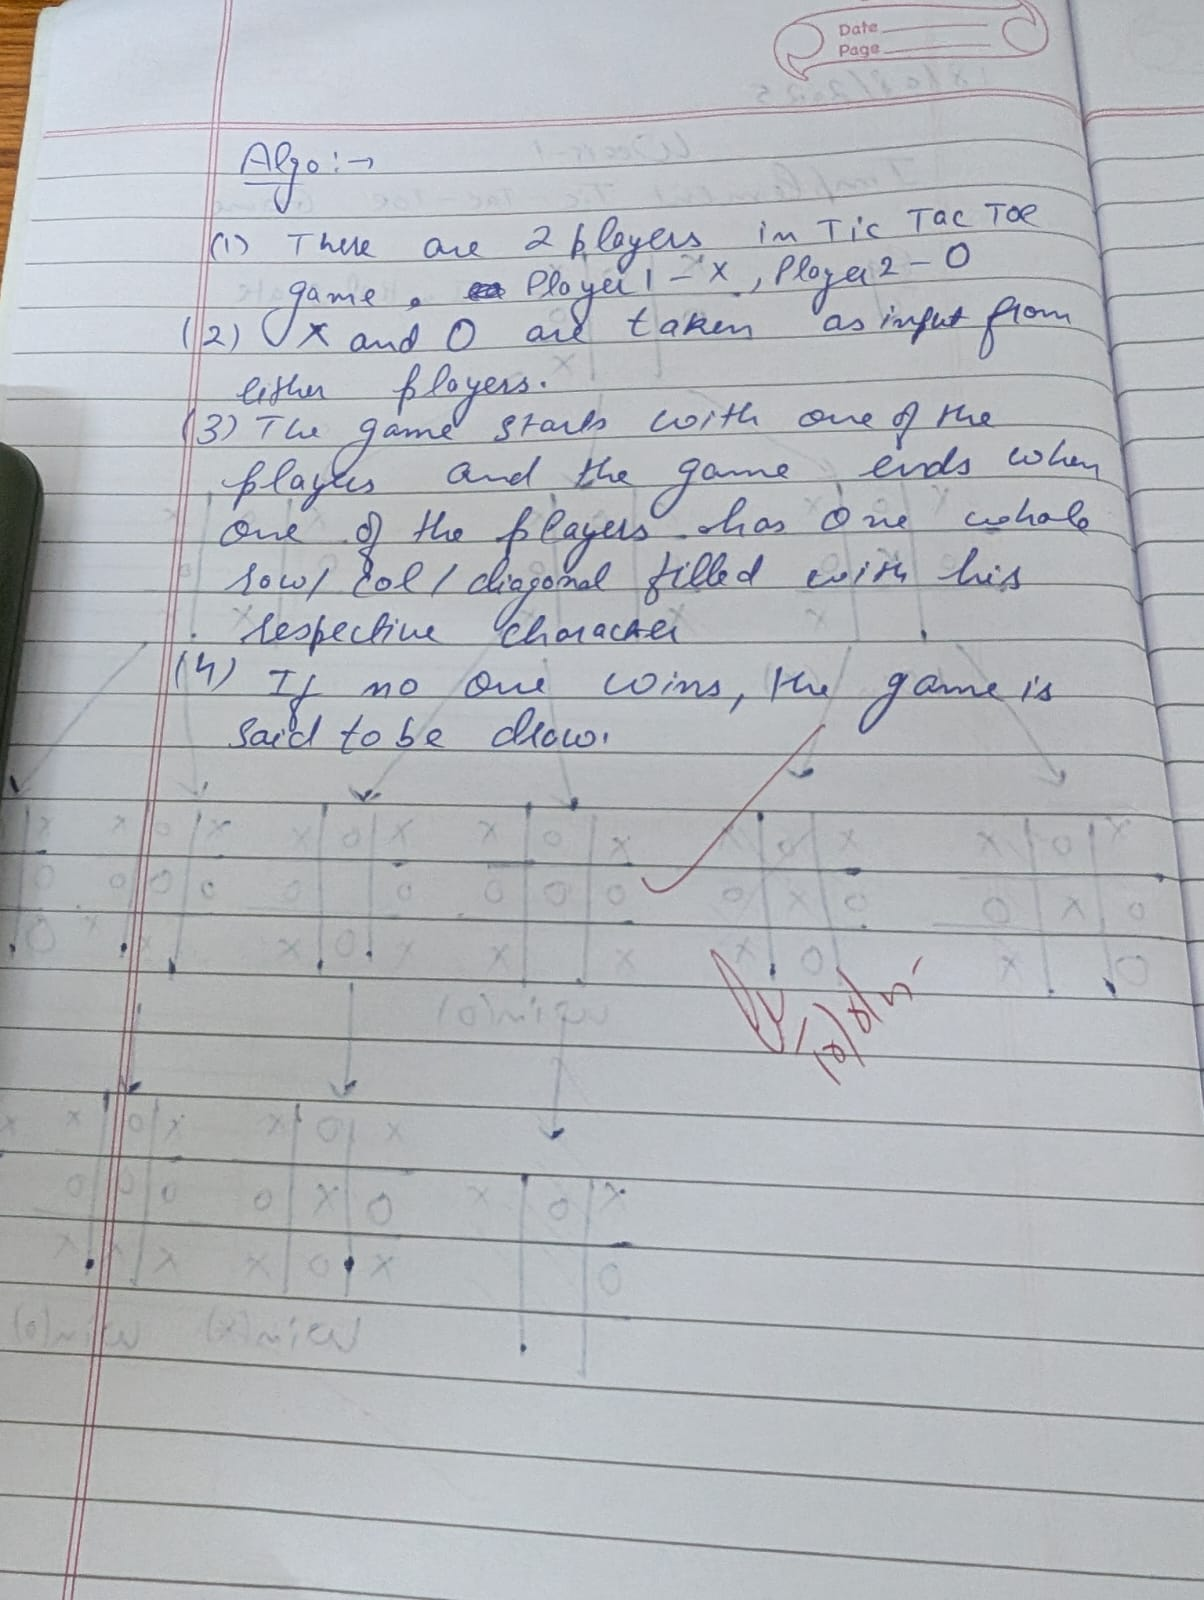 Date
Page
Algo :→
(1) There are 2 players in Tic Tac Toe
game. Player 1 - X, Player 2 - O
(2) X and O are taken as input from
either players.
(3) The game starts with one of the
players and the game ends when
one of the players has one whole
row/ col / diagonal filled with his
respective character
(4) If no one wins, the game is
said to be draw.